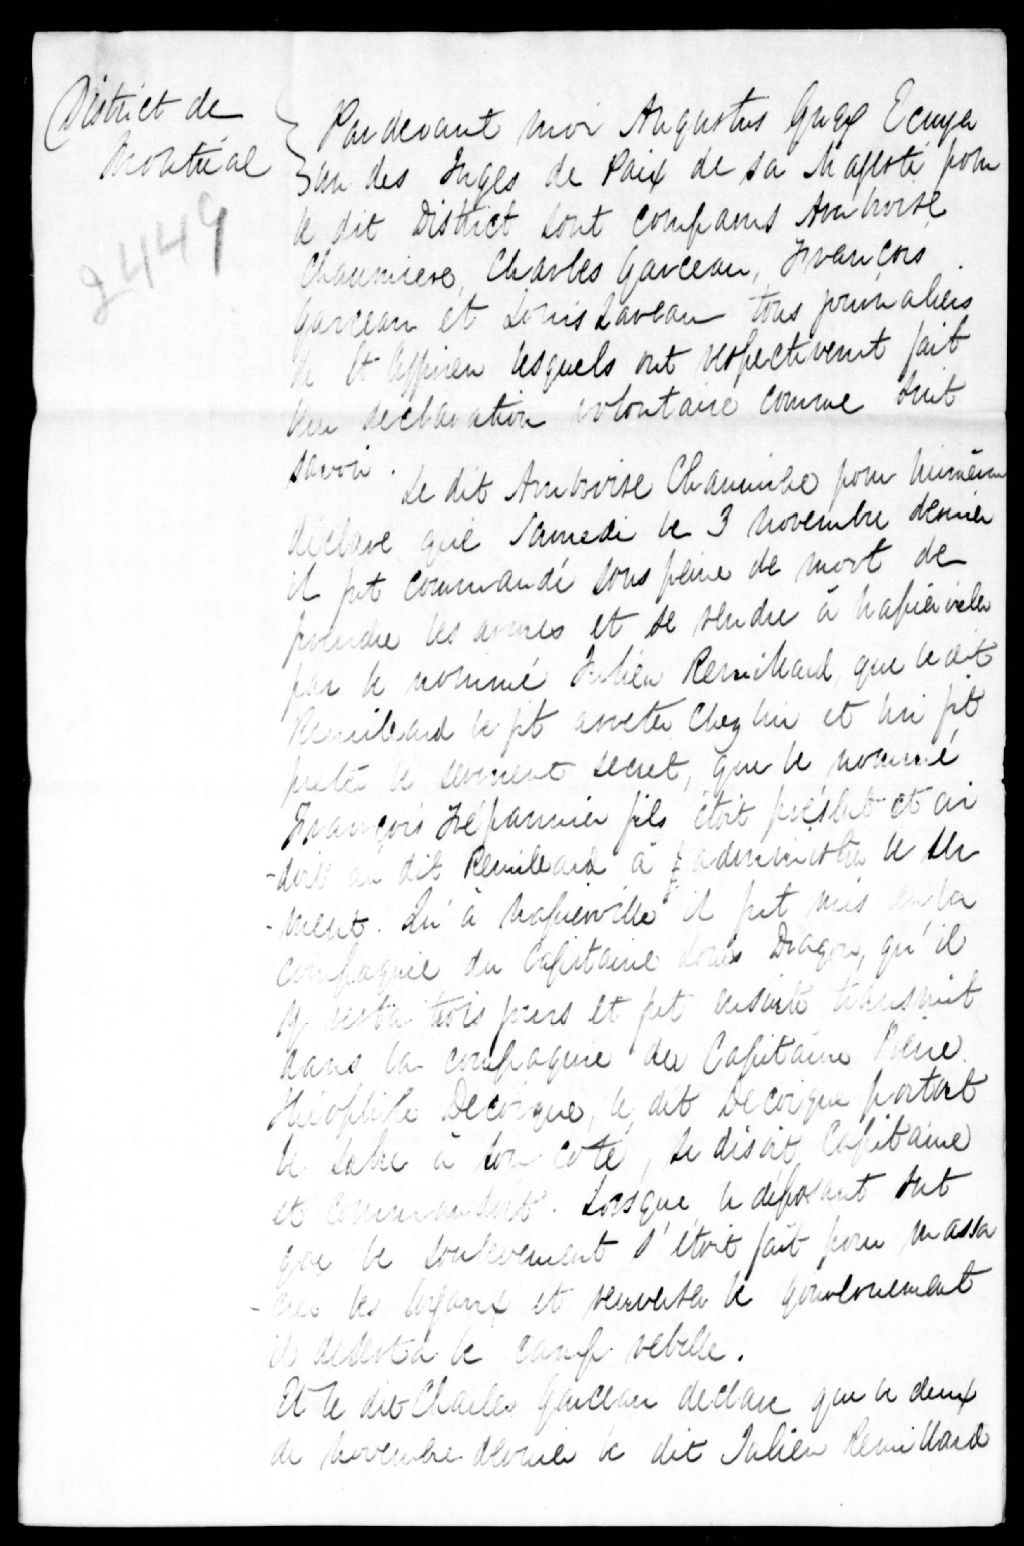 District de
Montréal
2449
Pardevant moi Augustus Gugy Ecuyer
un des Juges de Paix de sa Majesté pour
le dit District sont comparus Ambroise
Chaumiere, Charles Garceau, François
Garceau et Louis Laveau tous journaliers
de St Cyprien lesquels ont respectivement fait
leur declaration volontaire comme suit
savoir.
Le dit Ambroise Chaumiere pour luimême
déclare que Samedi le 3 Novembre dernier
il fut commandé sous peine de mort de
prendre les armes et se rendre à Napierville
par le nommé Julien Remillard, que le dit
Remillard le fit arreter chez lui et lui fit
preter le serment secret, que le nommé
François Trépannier fils étoit présent et ai
-doit au dit Remillard à administrer le ser
-ment. Qu'à Napierville il fut mis en la
compagnie du Capitaine Louis Dragon, qu'il
y resta trois jours et fut ensuite transmit
dans la compagnie du Capitaine Pierre
Théophile Decoigne, le dit Decoigne portoit
le sabre à son coté, se disoit Capitaine
et commandoit. Lorsque le déposant sut
que le soulevement s'étoit fait pour massa
-crer les loyaux et renverser le gouvernement
il deserta le camp rebelle.
Et le dit Charles Garceau declare que le deux
de Novembre dernier le dit Julien Remillard